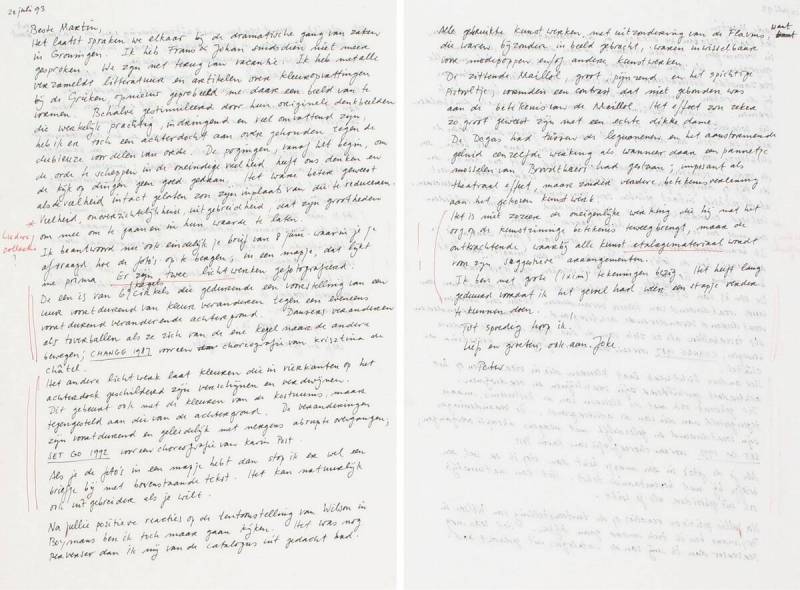 20 juli 93
Beste Martin,
Het laatst spraken we elkaar bij de dramatische gang van zaken
in Groningen. Ik heb Frans & Johan sindsdien niet meer
gesproken. We zijn net terug van vacantie. Ik heb met alle
verzamelde litteratuur en artikelen over kleuropvattingen
bij de Grieken, opnieuw geprobeerd me daar een beeld van te
vormen. Behalve gestimuleerd door hun originele denkbeelden
die werkelijk prachtig, indringend en veel omvattend zijn,
heb ik er toch een achterdocht aan over gehouden tegen de
dubieuze voordelen van orde. De pogingen, vanaf het begin, om
de orde te scheppen in de oneindige veelheid heeft ons denken en
de kijk op dingen geen goed gedaan. Het ware beter geweest
als de veelheid intact gelaten zou zijn inplaats van die te reduceren.
Veelheid, onoverzichtelijkheid, uitgebreidheid, dat zijn grootheden
om mee om te gaan en in hun waarde te laten.
Ik beantwoord nu ook eindelijk je brief van 8 juni waarin je je
afvraagd hoe de foto's op te bergen; in een mapje, dat lijkt
me prima. Er zijn twee lichtwerken gefotografeerd.
kegels
De een is van 6 cirkels die gedurende een voorstelling van een
uur voortdurend van kleur veranderen tegen een eveneens
voortdurend veranderende achtergrond. Dansers veranderen
als toverballen als ze zich van de ene kegel naar de andere
bewegen; CHANGE 1987 voor een choreografie van krisztina de
châtel.
Het andere lichtwerk laat kleuren die in vierkanten op het
achterdoek geschilderd zijn verschijnen en verdwijnen.
Dit gebeurt ook met de kleuren van de kostuums, maar
tegengesteld aan die van de achtergrond. De veranderingen
zijn voortdurend en geleidelijk met nergens abrupte overgangen;
SET GO 1992 voor een choreografie van karin Post.
Als je de foto's in een mapje hebt dan stop ik er wel een
briefje bij met bovenstaande tekst. Het kan natuurlijk
ook uitgebreider als je wilt.
Na jullie positieve reacties op de tentoonstelling van Wilson in
Boymans ben ik toch maar gaan kijken. Het was nog
perverser dan ik mij van de catalogus uit gedacht had.
Alle gebruikte kunstwerken, met uitzondering van de Flavins, want
die waren bijzonder in beeld gebracht, waren inwisselbaar
voor modepoppen en/of andere kunstwerken.
De zittende Maillol, groot, peinzend en het spichtige
pistooltje, vormden een contrast dat niet gebonden was
aan de betekenis van de Maillol. Het effect zou zeker
zo groot geweest zijn met een echte dikke dame.
De Degas had tussen de leguanen en het aanstormende
geluid eenzelfde werking als wanneer daar een pannetje
mosselen van Broodthaers had gestaan; imposant als
theatraal effect, maar zonder verdere betekenisverlening
aan het gekozen kunstwerk.
Het is niet zozeer de oneigenlijke werking die hij met het
oog op de kunstzinnige betekenis teweegbrengt, maar de
ontkrachtende, waarbij alle kunst etalagemateriaal wordt
voor zijn suggestieve arrangementen.
Ik ben met grote tekeningen bezig. Het heeft lang
geduurd voordat ik het gevoel had weer een stapje verder
te kunnen doen.
Tot spoedig hoop ik.
Liefs en groeten, ook aan Joke
Peter